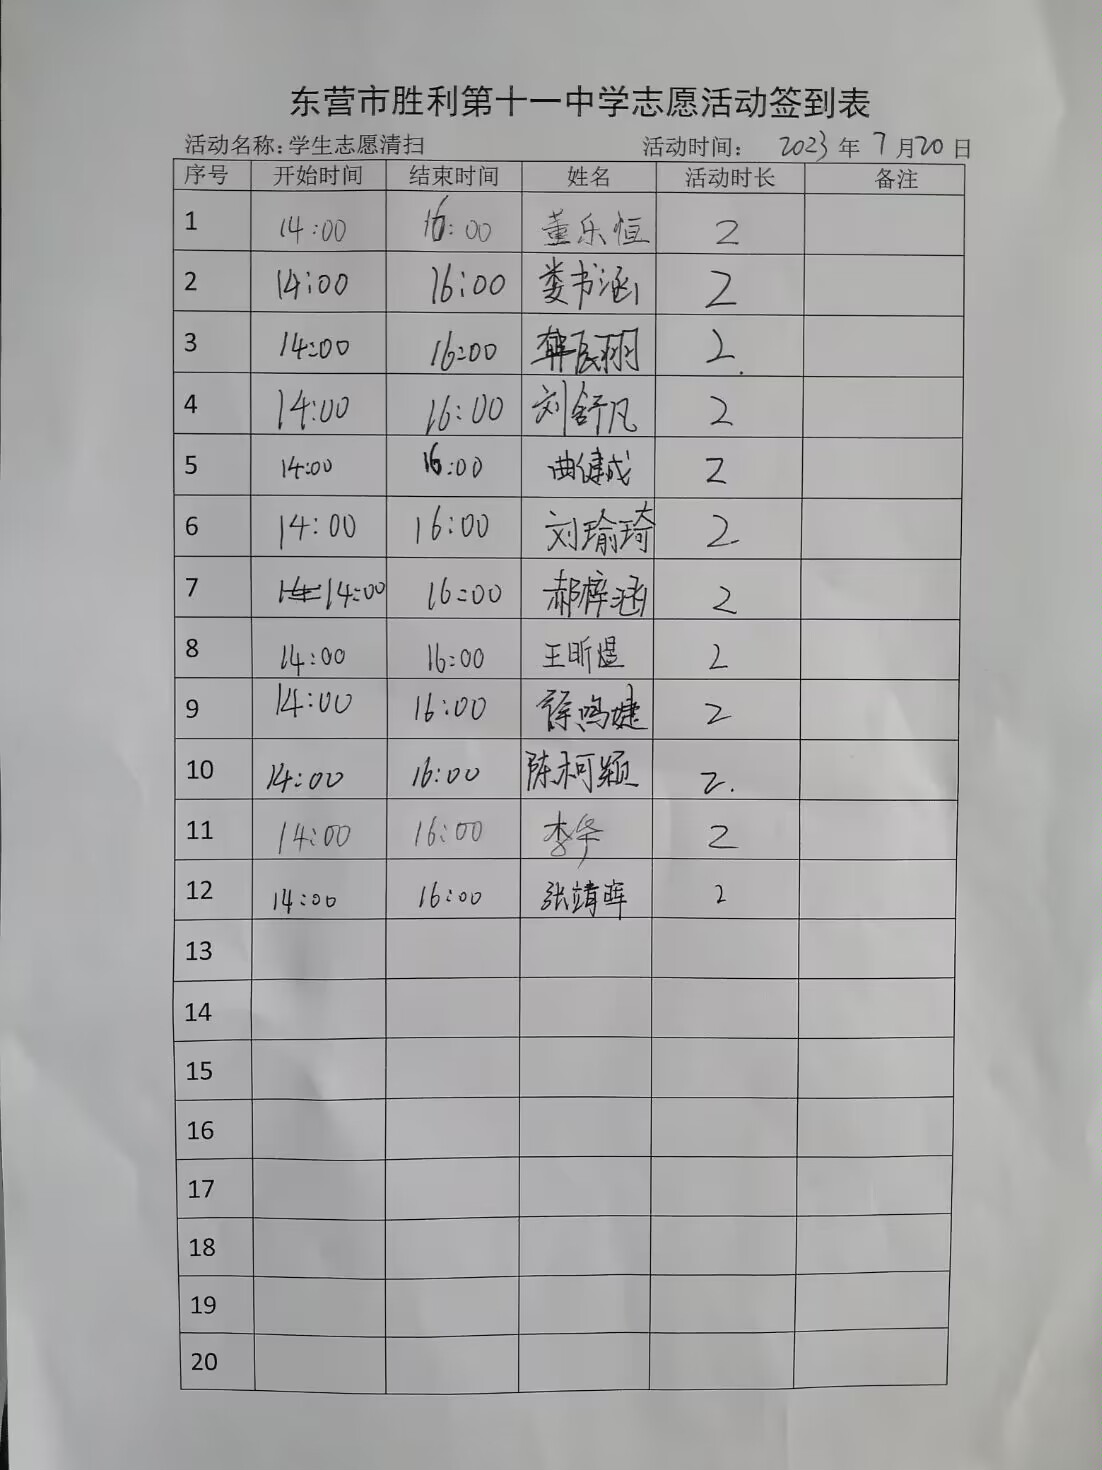 东营市胜利第十一中学志愿活动签到表
活动名称：学生志愿清扫 活动时间： 2023 年 7 月 20 日
序号 开始时间 结束时间 姓名 活动时长 备注
1 14:00 16:00 董乐恒 2
2 14:00 16:00 娄书涵 2
3 14:00 16:00 2.
4 14:00 16:00 刘舒凡 2
5 14:00 16:00 曲健成 2
6 14:00 16:00 刘瑜琦 2
7 14:00 16:00 郝梓涵 2
8 14:00 16:00 王昕煜 2
9 14:00 16:00 徐鸣婕 2
10 14:00 16:00 陈柯颖 2.
11 14:00 16:00 李华 2
12 14:00 16:00 张靖晖 2
13
14
15
16
17
18
19
20